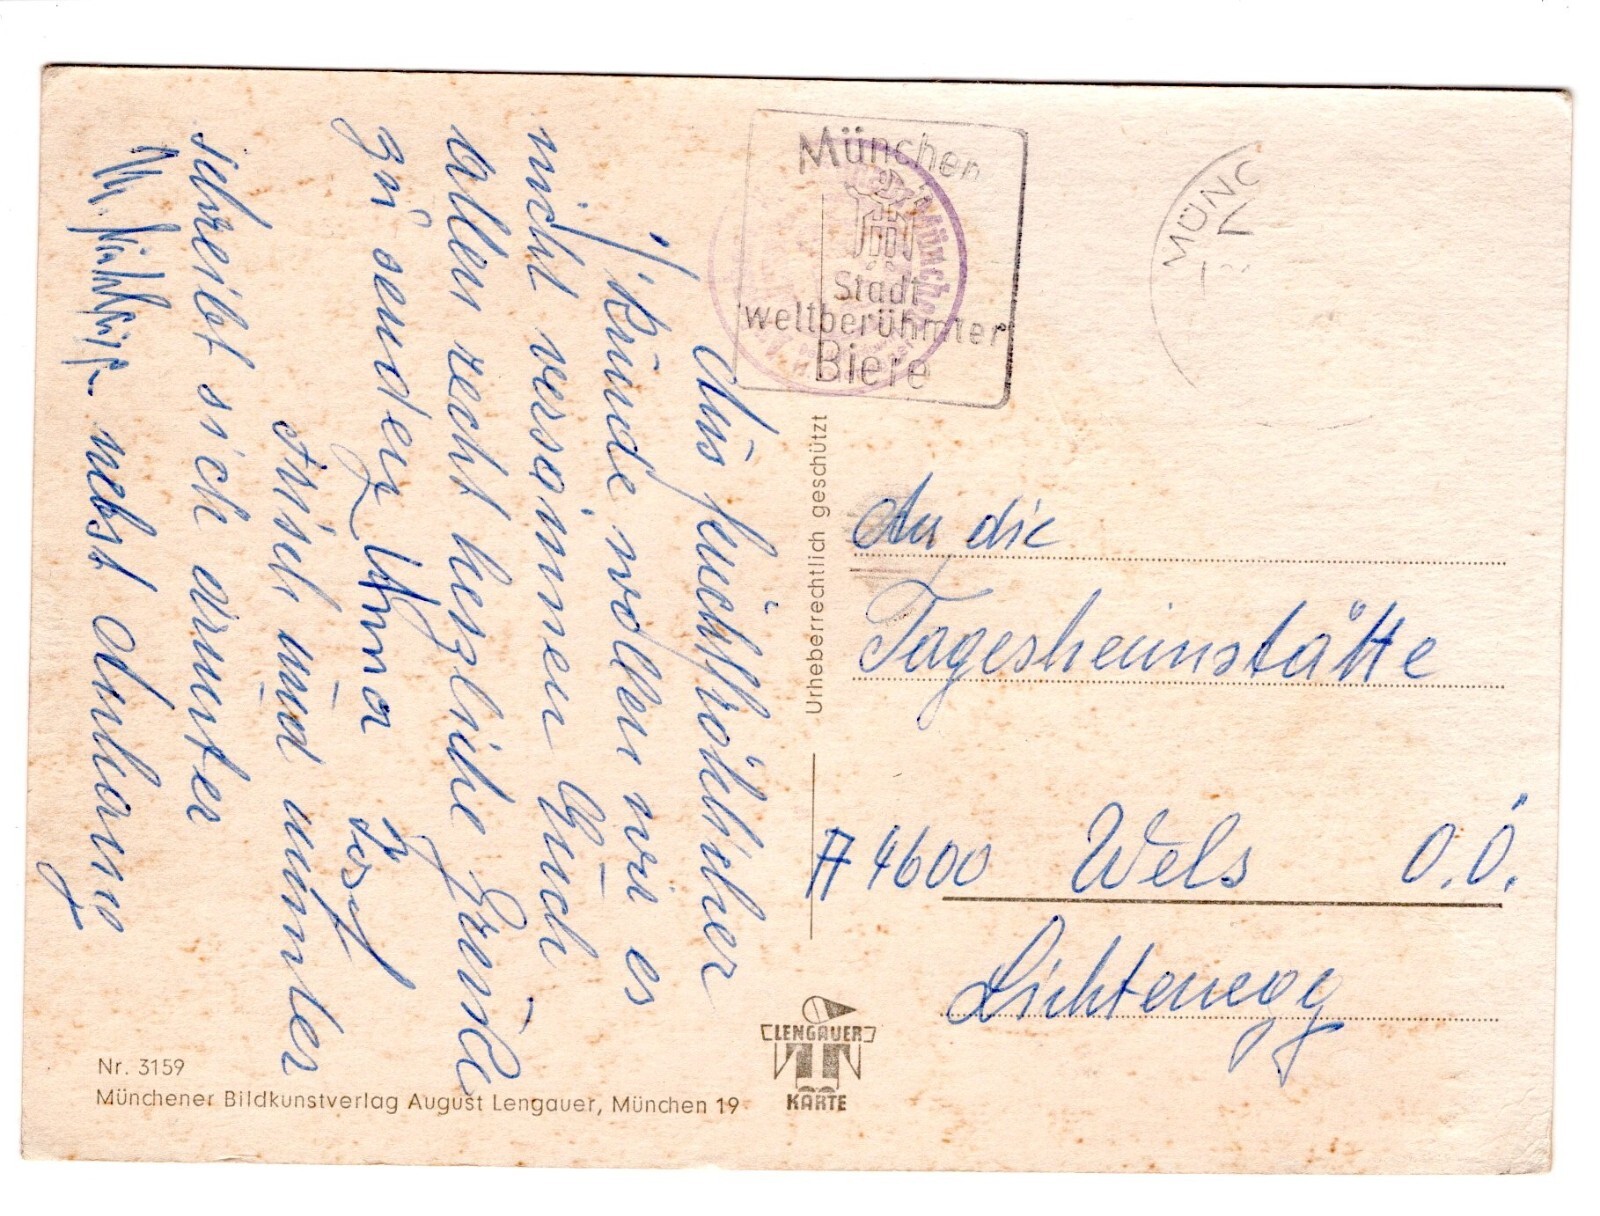 München
Stadt
weltberühmter
Biere
MÜNC
Aus feuchtfröhlicher
Runde wollen wir es
nicht versäumen Euch
allen recht herzliche Grüsse
zu senden
Josef
und
schreibt sich drunter
nebst Anhang
Urheberrechtlich geschützt
An die
Tagesheimstätte
A 4600 Wels O.Ö.
Lichtenegg
LENGAUER
KARTE
Nr. 3159
Münchener Bildkunstverlag August Lengauer, München 19